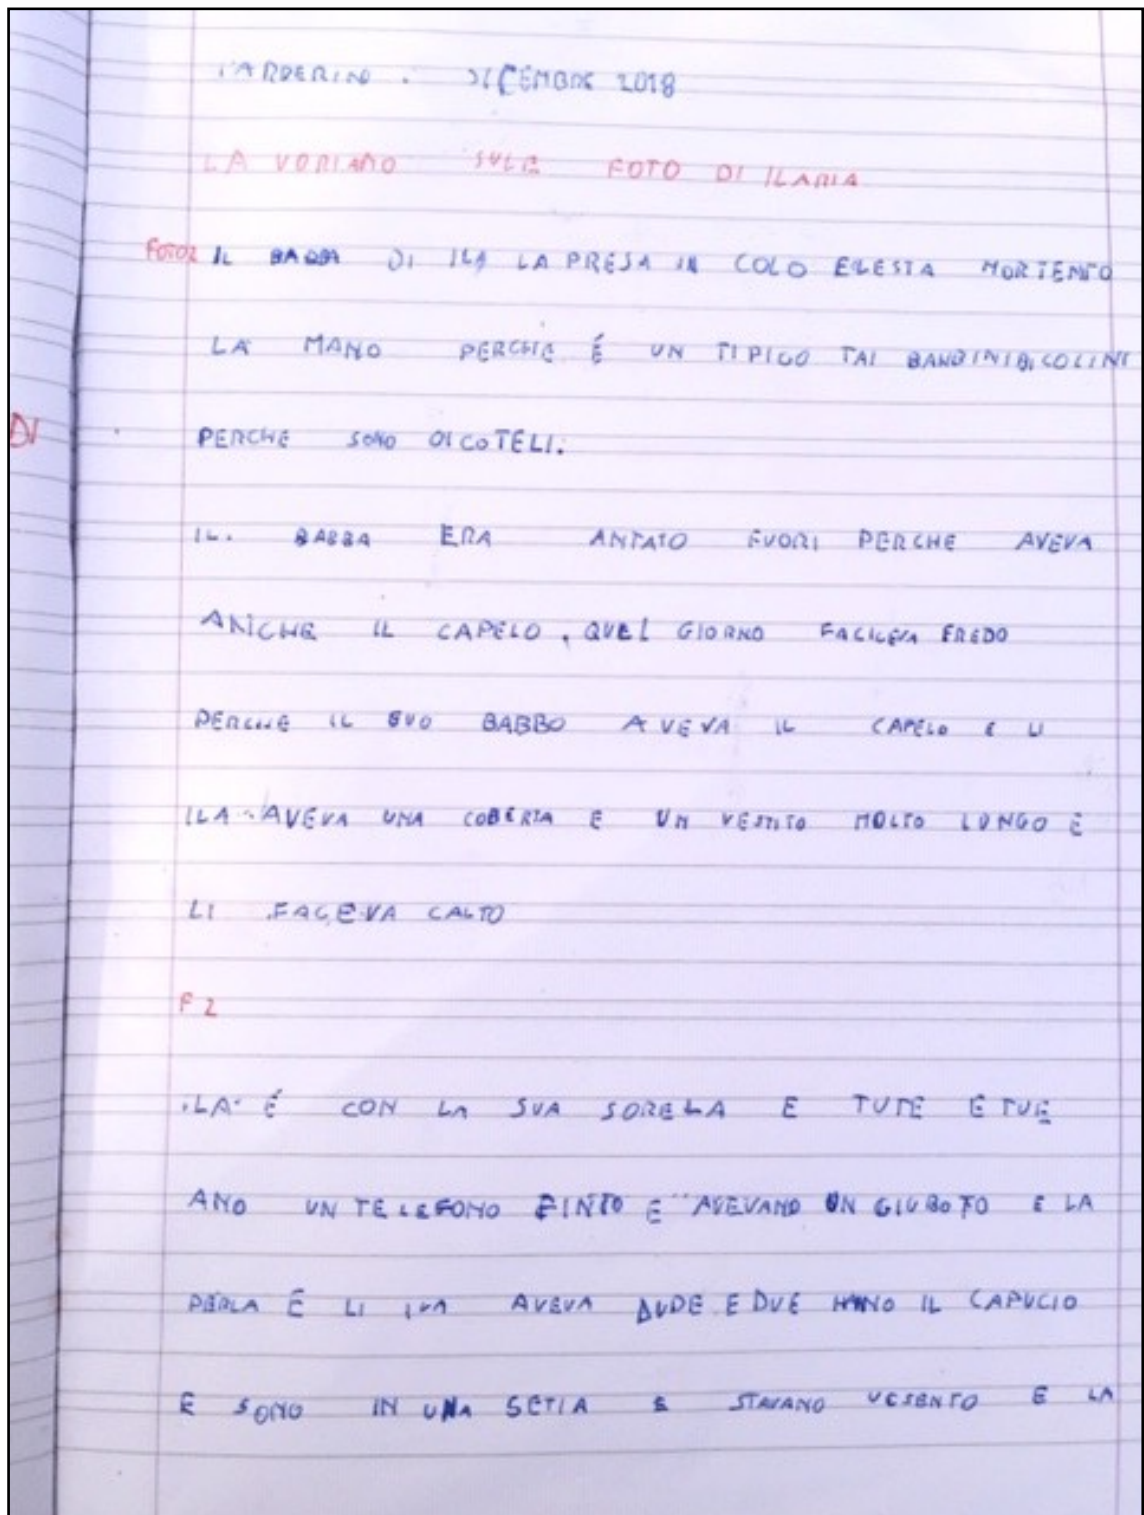 DICEMBRE 2018
LA VORIAMO SULE FOTO DI ILARIA
IL BABBA DI ILA LA PRESA IN COLO ELESTA MORTENTO
LA MANO PERCHE É UN TIPICO TAI BANBINIBICOLINI
DI
PERCHE SONO DICOTELI.
IL. BABBA ERA ANTATO FUORI PERCHE AVEVA
ANCHE IL CAPELO, QUEL GIORNO FREDO
PERCHE IL SUO BABBO AVEVA IL CAPELO E LI
ILA AVEVA UNA COBERTA E UN VESTITO MOLTO LUNGO E
LI FACEVA CALTO
F 2
É CON LA SUA SORELA E TUTE E TUE
ANO UN TELEFONO FINTO E AVEVANO UN GIUBOTO E LA
PERLA E LI AVEVA E DUE HANO IL CAPUCIO
E SONO IN UNA SETIA E STAVANO E LA